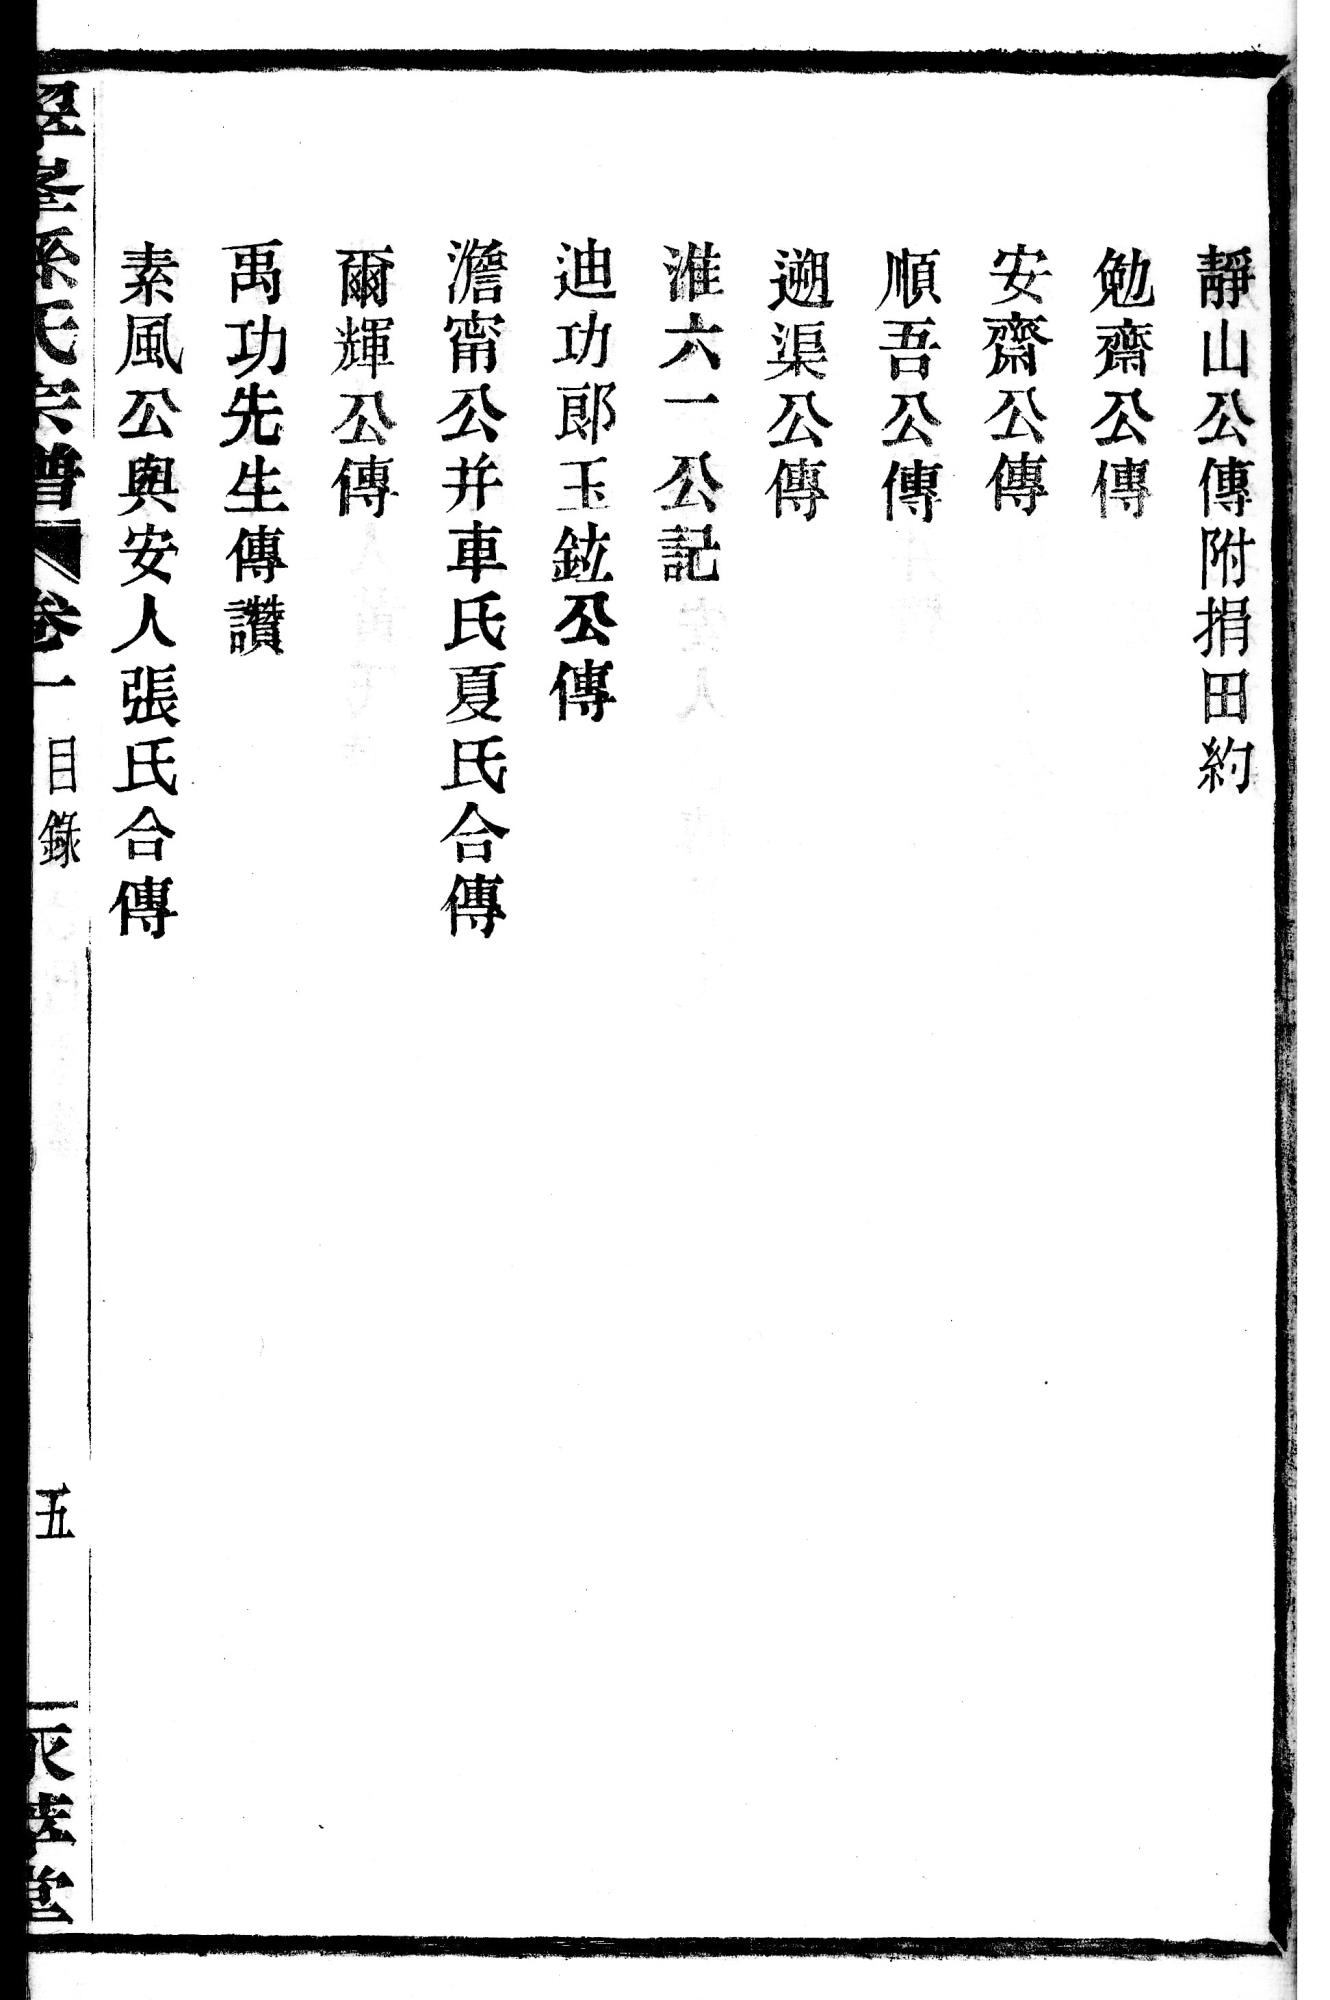 靜山公傳附捐田約
勉齋公傳
安齋公傳
順吾公傳
遡渠公傳
淮六一公記
迪功郎玉鉉公傳
澹甯公并車氏夏氏合傳
爾輝公傳
禹功先生傳讚
素風公與安人張氏合傳
孫氏宗譜 卷一 目錄 五 堂